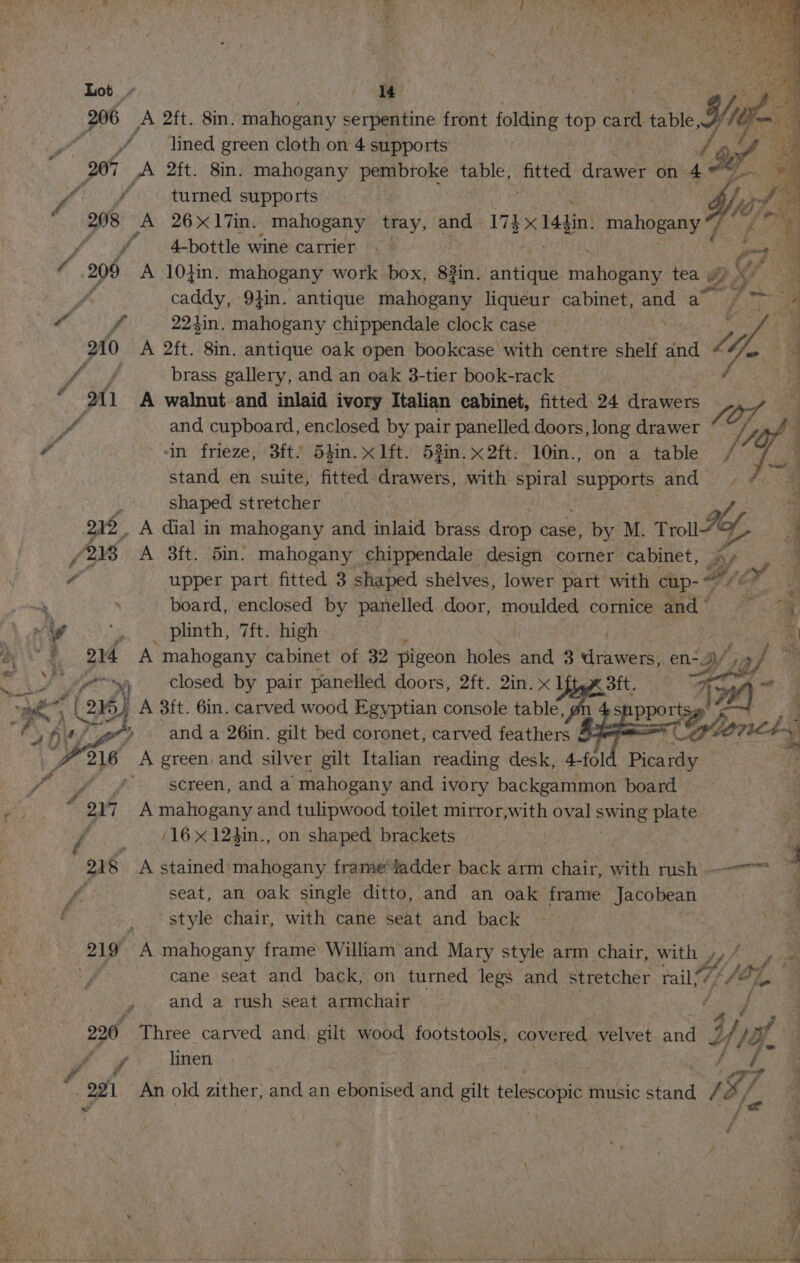 Lot 14
206 A 2ft. 8in. mahogany serpentine front folding top card table,
lined green cloth on 4 supports
207 A 2ft. 8in. mahogany pembroke table, fitted drawer on 4
turned supports
208 A 26×17in. mahogany tray, and 17½×14½in. mahogany
4-bottle wine carrier
209 A 10½in. mahogany work box, 8¾in. antique mahogany tea
caddy, 9½in. antique mahogany liqueur cabinet, and a
22½in. mahogany chippendale clock case
210 A 2ft. 8in. antique oak open bookcase with centre shelf and
brass gallery, and an oak 3-tier book-rack
211 A walnut and inlaid ivory Italian cabinet, fitted 24 drawers
and cupboard, enclosed by pair panelled doors, long drawer
in frieze, 3ft. 5½in.×1ft. 5¾in.×2ft. 10in., on a table
stand en suite, fitted drawers, with spiral supports and
shaped stretcher
212 A dial in mahogany and inlaid brass drop case, by M. Troll
213 A 3ft. 5in. mahogany chippendale design corner cabinet,
upper part fitted 3 shaped shelves, lower part with cup-
board, enclosed by panelled door, moulded cornice and
plinth, 7ft. high
214 A mahogany cabinet of 32 pigeon holes and 3 drawers, en-
closed by pair panelled doors, 2ft. 2in. × 1ft. × 3ft.
215 A 3ft. 6in. carved wood Egyptian console table, on 4 supports,
and a 26in. gilt bed coronet, carved feathers
216 A green and silver gilt Italian reading desk, 4-fold Picardy
screen, and a mahogany and ivory backgammon board
217 A mahogany and tulipwood toilet mirror, with oval swing plate
16×12½in., on shaped brackets
218 A stained mahogany frame ladder back arm chair, with rush
seat, an oak single ditto, and an oak frame Jacobean
style chair, with cane seat and back
219 A mahogany frame William and Mary style arm chair, with
cane seat and back, on turned legs and stretcher rail,
and a rush seat armchair
220 Three carved and gilt wood footstools, covered velvet and
linen
221 An old zither, and an ebonised and gilt telescopic music stand